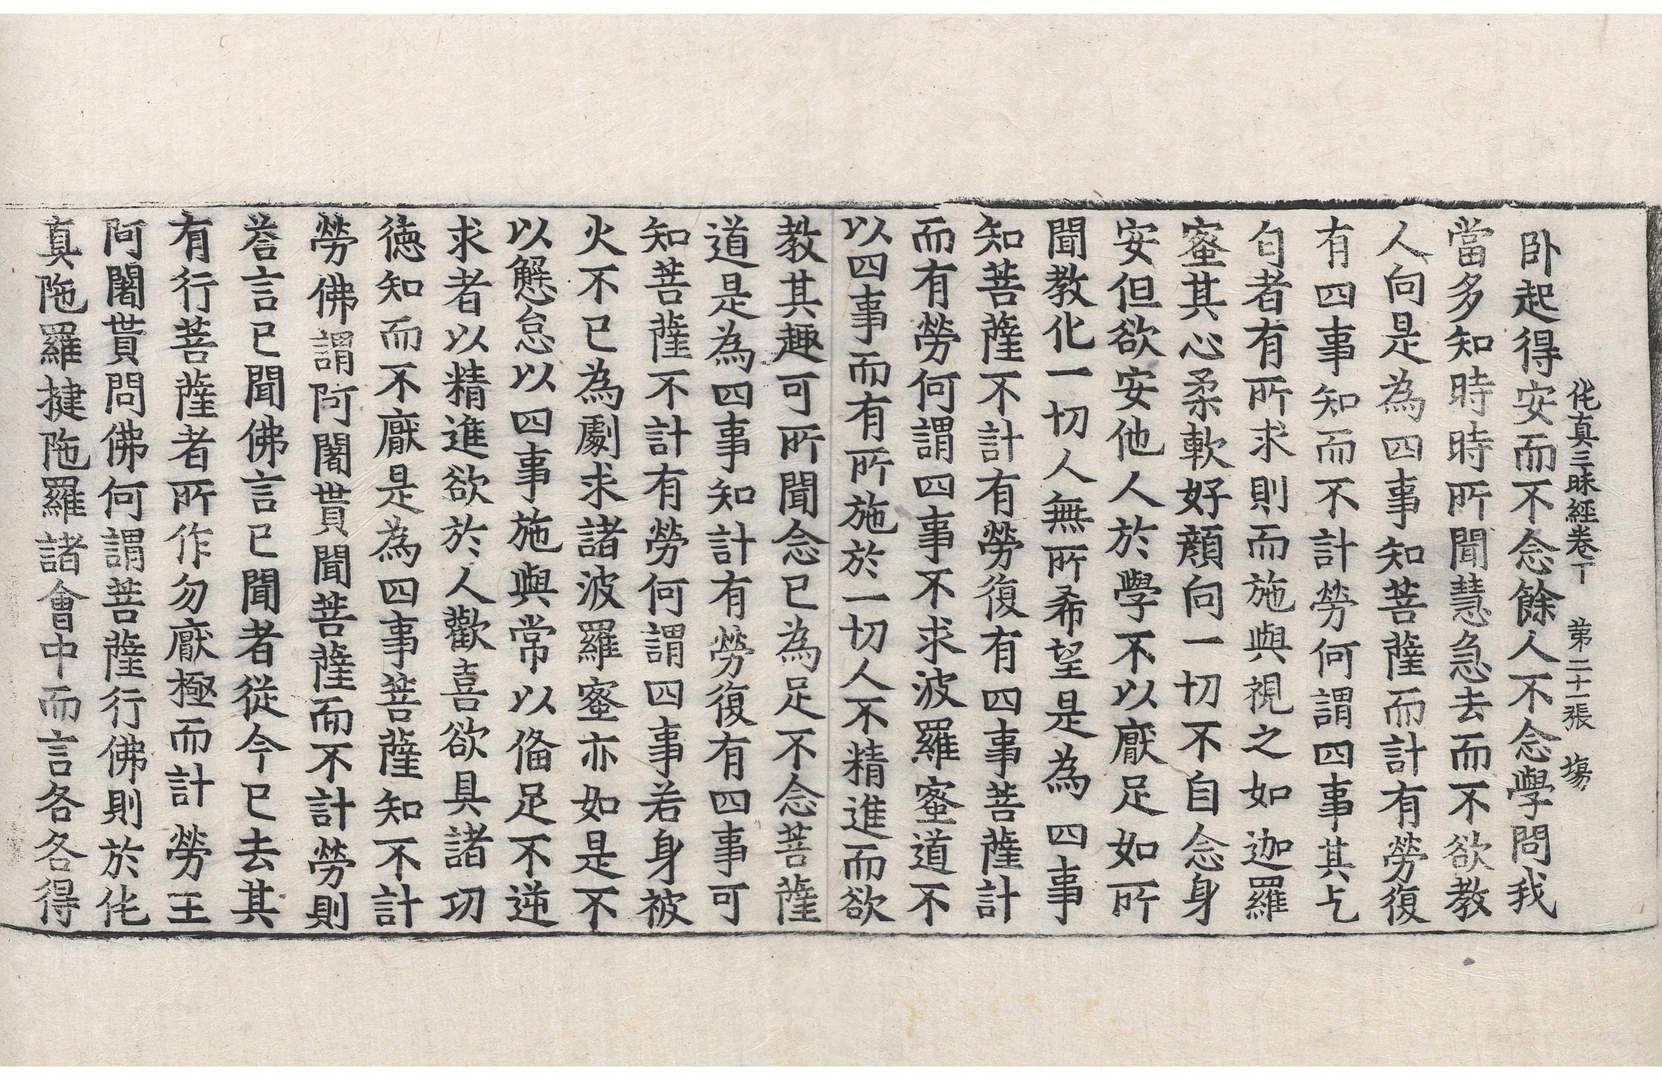 佗真三昧經卷下　第二十一張　塲
卧起得安而不念餘人不念學問我
當多知時時所聞慧急去而不欲教
人向是為四事知菩薩而計有勞復
有四事知而不計勞何謂四事其乞
匃者有所求則而施與視之如迦羅
蜜其心柔軟好顔向一切不自念身
安但欲安他人於學不以厭足如所
聞教化一切人無所希望是為四事
知菩薩不計有勞復有四事菩薩計
而有勞何謂四事不求波羅蜜道不
以四事而有所施於一切人不精進而欲
教其趣可所聞念已為足不念菩薩
道是為四事知計有勞復有四事可
知菩薩不計有勞何謂四事若身被
火不已為劇求諸波羅蜜亦如是不
以懈怠以四事施與常以俻足不逆
求者以精進欲於人歡喜欲具諸功
德知而不厭是為四事菩薩知不計
勞佛謂阿闍貰聞菩薩而不計勞則
誉言已聞佛言已聞者從今已去其
有行菩薩者所作勿厭極而計勞王
阿闍貰問佛何謂菩薩行佛則於佗
真陁羅揵陁羅諸會中而言各各得